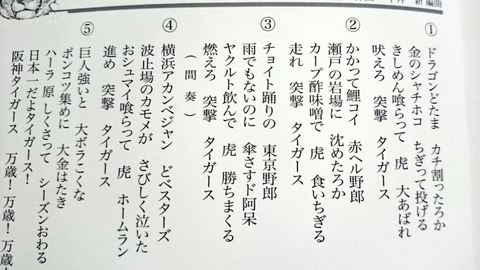 井 新 編曲
① ドラゴンどたま カチ割ったろか
金のシャチホコ ちぎって投げる
きしめん喰らって 虎 大あばれ
吠えろ 突撃 タイガース
② かかって鯉コイ 赤ヘル野郎
瀬戸の岩場に 沈めたろか
カープ酢味噌で 虎 食いちぎる
走れ 突撃 タイガース
③ チョイト踊りの 東京野郎
雨でもないのに 傘さすド阿呆
ヤクルト飲んで 虎 勝ちまくる
燃えろ 突撃 タイガース
(間奏)
④ 横浜アカンベジャン どべスターズ
波止場のカモメが さびしく泣いた
おシュマイ喰らって 虎 ホームラン
進め 突撃 タイガース
⑤ 巨人強いと 大ボラこくな
ポンコツ集めに 大金はたき
ハーラ 原 しくさって シーズンおわる
日本一だよタイガース!
阪神タイガース 万歳! 万歳! 万